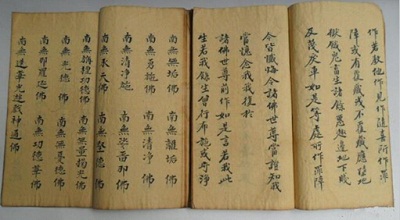 作若教他作見作隨喜所作罪
障或有覆藏或不覆藏應墮地
獄餓鬼畜生諸餘惡趣邊地下賤
及蔑戾車如是等處所作罪障
今皆懺悔今諸佛世尊當證知我
當憶念我我復於
諸佛世尊前作如是言若我此
生若我餘生曾行布施或守淨
南無無垢佛 南無離垢佛
南無勇施佛 南無清淨佛
南無清淨施佛 南無娑留那佛
南無水天佛 南無堅德佛
南無栴檀功德佛 南無無量掬光佛
南無光德佛 南無無憂德佛
南無那羅延佛 南無功德華佛
南無蓮華光遊戲神通佛